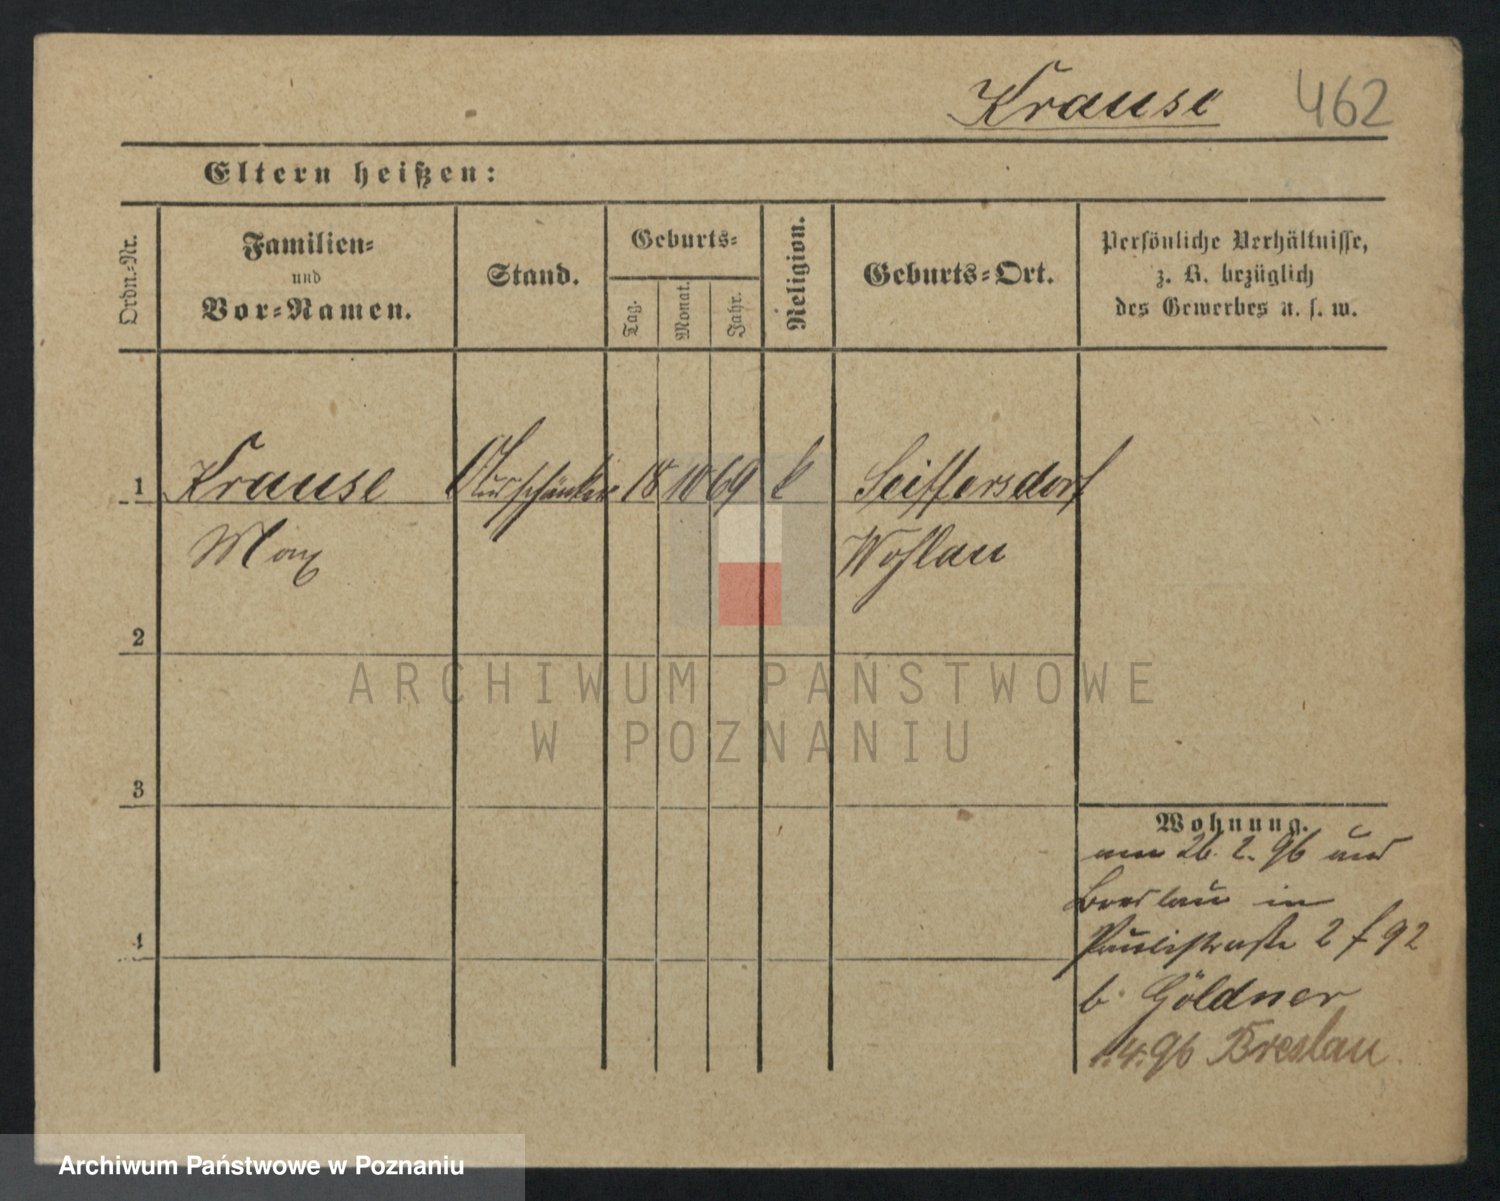 Krause 462
Eltern heißen:
Ordn.-Nr.
Familien-
und
Vor-Namen.
Stand.
Geburts-
Tag.
Monat.
Jahr.
Religion.
Geburts-Ort.
Persönliche Verhältnisse,
z. B. bezüglich
des Gewerbes u. s. w.
1 Krause 18 10 69 k Seiffersdorf
Max Wohlau
2
ARCHIWUM PAŃSTWOWE
W POZNANIU
3
Wohnung.
26. 2. 96
Breslau in
Paulistraße 2 f 92
b. Göldner
4
1.4.96 Breslau
Archiwum Państwowe w Poznaniu